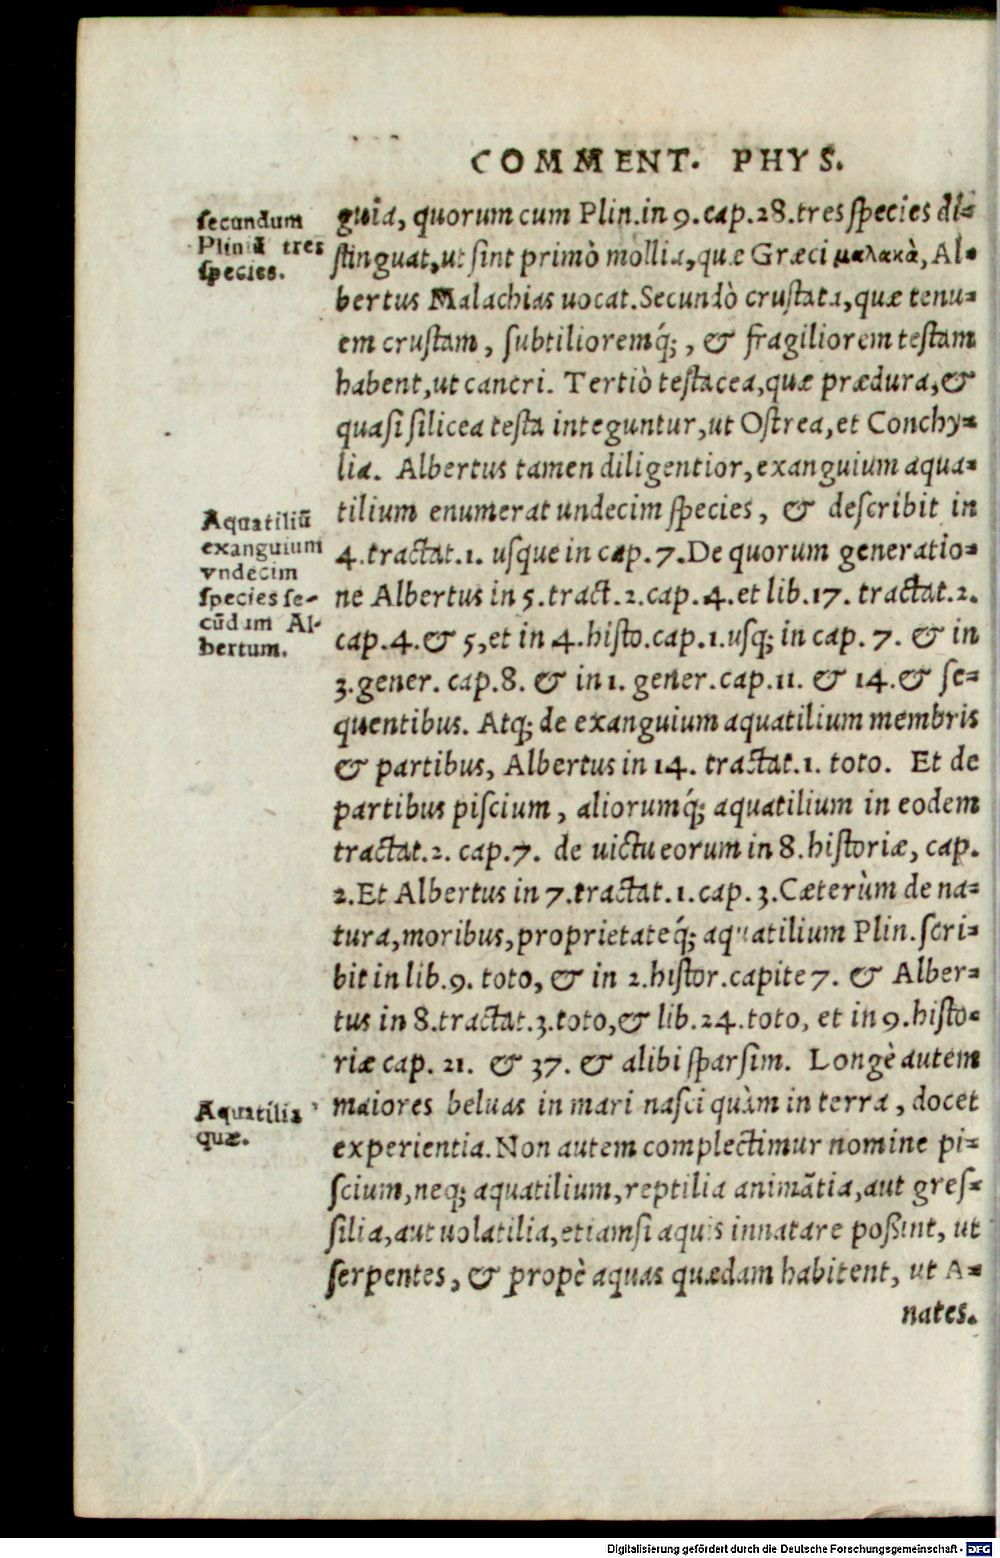 COMMENT. PHYS.
secundum
Pliniū tres
species.
guia, quorum cum Plin.in 9.cap.28.tres species di=
stinguat,ut sint primò mollia,quæ Græci μαλακὰ, Al=
bertus Malachias uocat.Secundò crustata,quæ tenu=
em crustam, subtilioremq́;, & fragiliorem testam
habent,ut cancri. Tertiò testacea,quæ prædura,&
quasi silicea testa integuntur,ut Ostrea,et Conchy=
lia. Albertus tamen diligentior,exanguium aqua=
tilium enumerat undecim species, & describit in
4.tractat.1. usque in cap.7.De quorum generatio=
ne Albertus in 5.tract.2.cap.4.et lib.17. tractat.2.
cap.4.& 5,et in 4.histo.cap.1.usq; in cap. 7. & in
3.gener. cap.8. & in 1. gener.cap.11. & 14.& se=
quentibus. Atq; de exanguium aquatilium membris
& partibus, Albertus in 14. tractat.1. toto. Et de
partibus piscium, aliorumq́; aquatilium in eodem
tractat.2. cap.7. de uictu eorum in 8.historiæ, cap.
2.Et Albertus in 7.tractat.1.cap.3.Cæterùm de na=
tura,moribus,proprietateq́; aquatilium Plin.scri=
bit in lib.9. toto, & in 2.histor.capite 7. & Alber=
tus in 8.tractat.3.toto,& lib.24.toto, et in 9.histo=
riæ cap. 21. & 37. & alibi sparsim. Longè autem
maiores beluas in mari nasci quàm in terra, docet
experientia.Non autem complectimur nomine pi=
scium,neq; aquatilium,reptilia animātia,aut gres=
silia,aut uolatilia,etiamsi aquis innatare poßint, ut
serpentes, & propè aquas quædam habitent, ut A=
nates.
Aquatiliū
exanguium
vndecim
species se-
cūdum Al-
bertum.
Aquatilia
quæ.
Digitalisierung gefördert durch die Deutsche Forschungsgemeinschaft - DFG